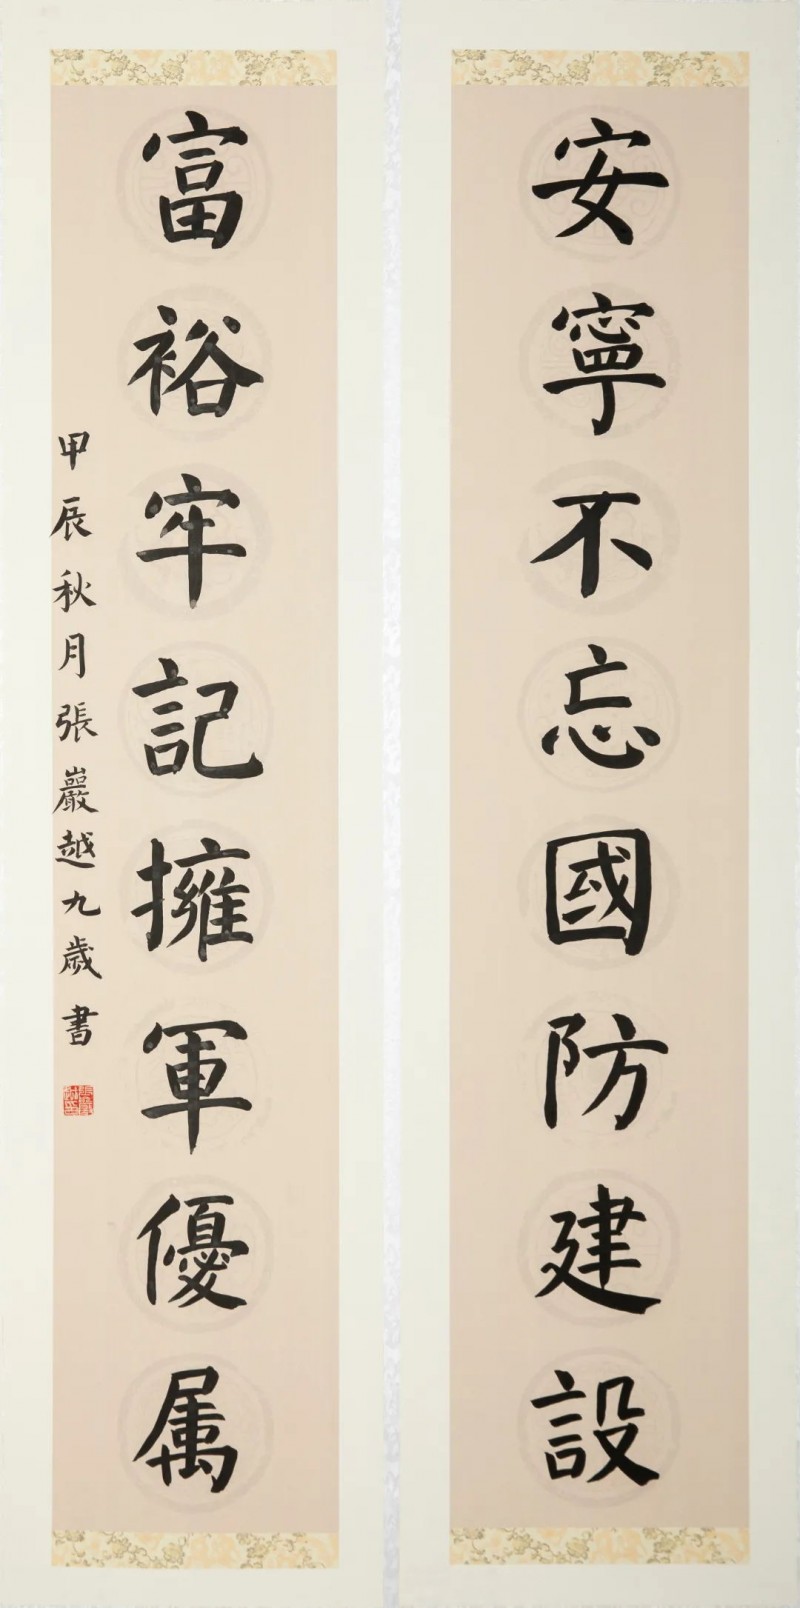 安寧不忘國防建設
富裕牢記擁軍優属
甲辰秋月張巖越九歲書